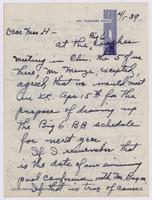 4/1-39.
Dear Miss H-
Big 6
At the Coaches
meeting in Chi. the 5 of us
there, Mr. Menze excepted,
agreed that we would meet
in K.C. Apr 15th for the
purpose of drawing up
the Big 6 BB schedule
for next year.
If I remember that
is the date of our swimming
pool Conference with Mr.
If this is true of course